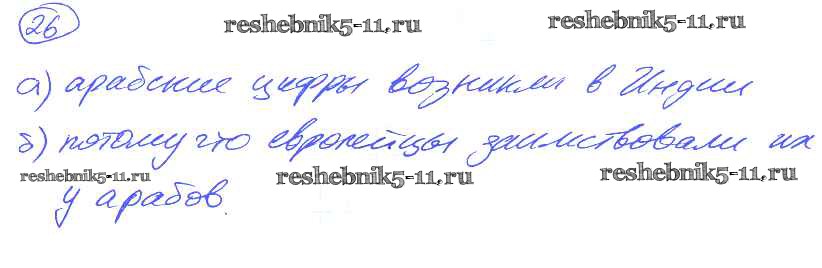 26 reshebnik5-11.ru reshebnik5-11.ru
а) арабские цифры возникли в Индии
б) потому что европейцы заимствовали их
reshebnik5-11.ru reshebnik5-11.ru reshebnik5-11.ru
у арабов.